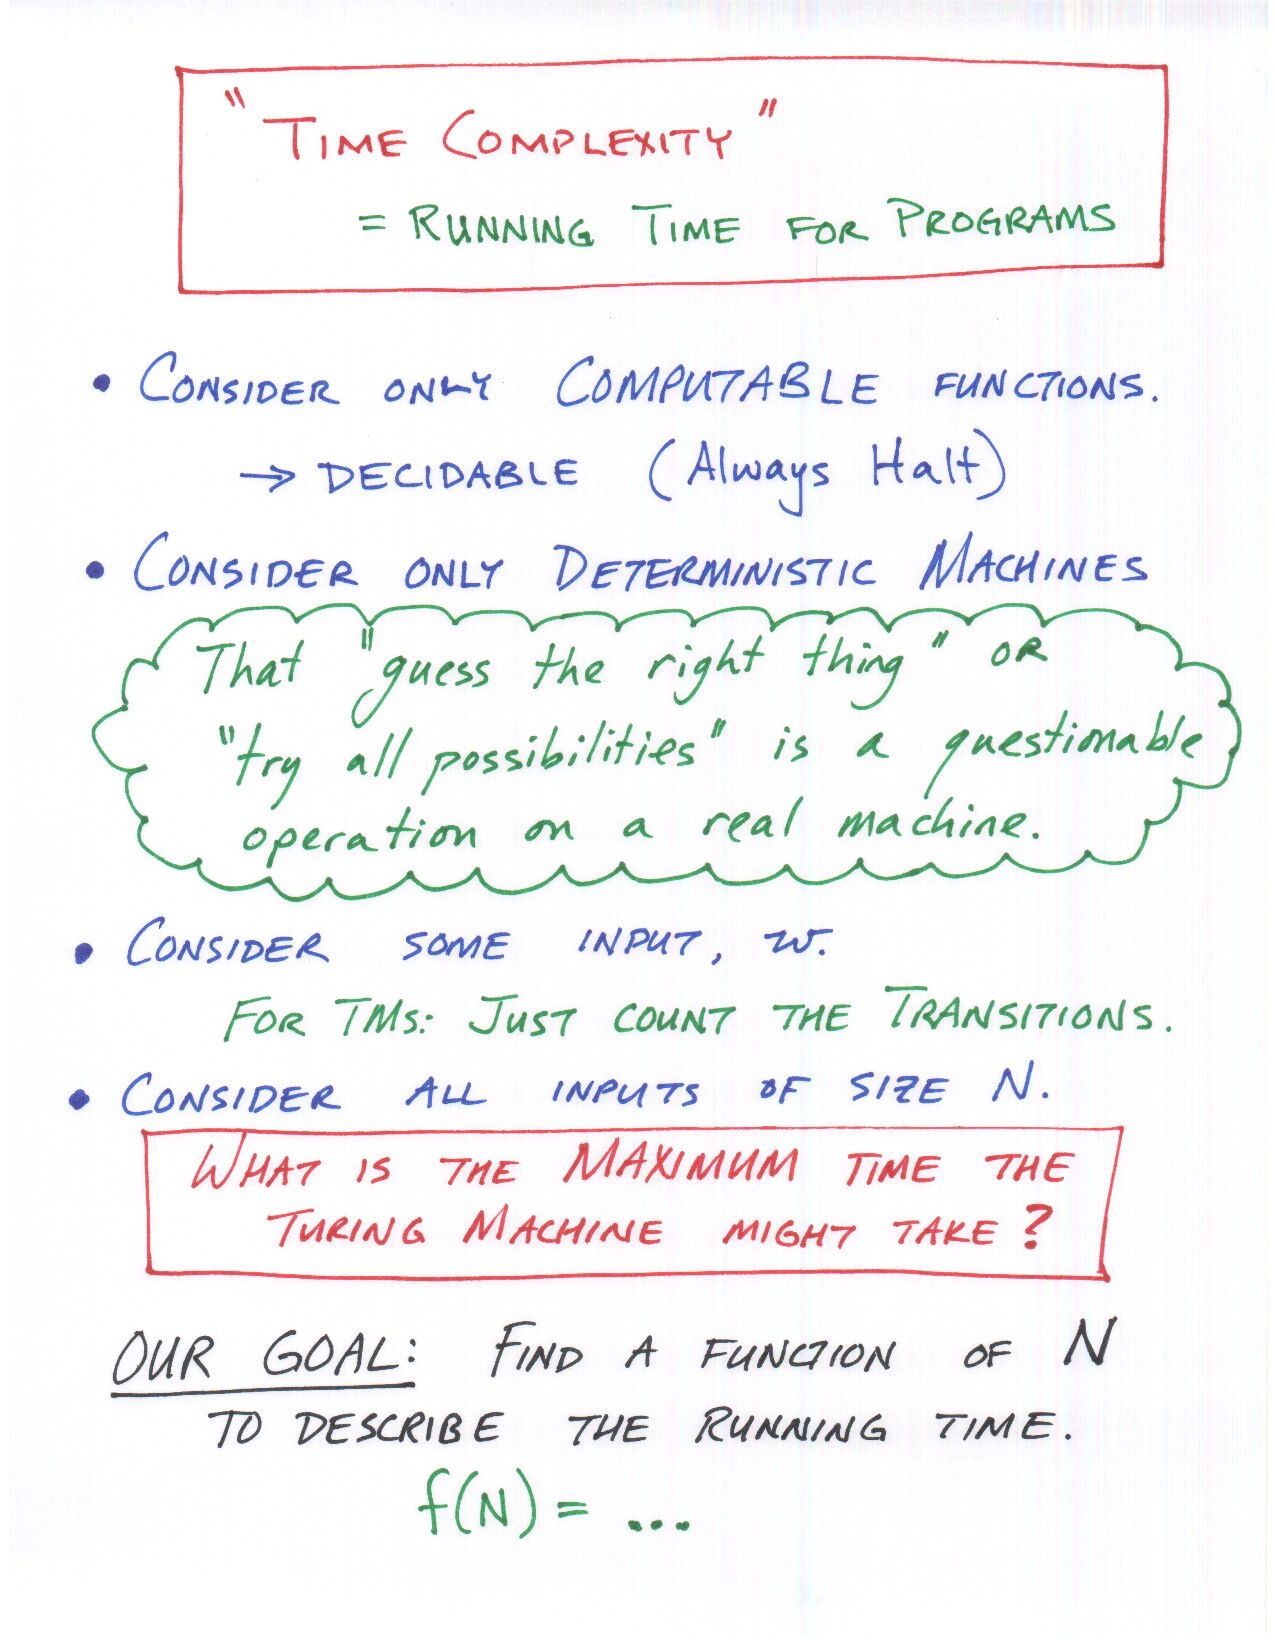 "TIME COMPLEXITY"
= RUNNING TIME FOR PROGRAMS
• CONSIDER ONLY COMPUTABLE FUNCTIONS.
→ DECIDABLE (Always Halt)
• CONSIDER ONLY DETERMINISTIC MACHINES
That "guess the right thing" OR
"try all possibilities" is a questionable
operation on a real machine.
• CONSIDER SOME INPUT, w.
FOR TMs: JUST COUNT THE TRANSITIONS.
• CONSIDER ALL INPUTS OF SIZE N.
WHAT IS THE MAXIMUM TIME THE
TURING MACHINE MIGHT TAKE?
OUR GOAL: FIND A FUNCTION OF N
TO DESCRIBE THE RUNNING TIME.
f(N) = ...